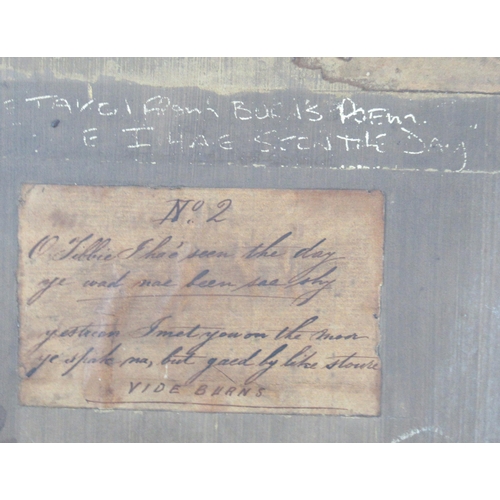 TAKEN From BURNS POEM.
E I HAE SEEN THE DAY"
No. 2
O Tibbie I ha'e seen the day
ye wad nae been sae shy
yestreen I met you on the moor
ye spak na, but gaed by like stoure
VIDE BURNS